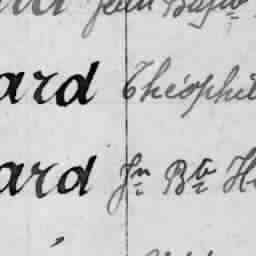 Jean Bapt
ard Théophil
ard Jn Bte H